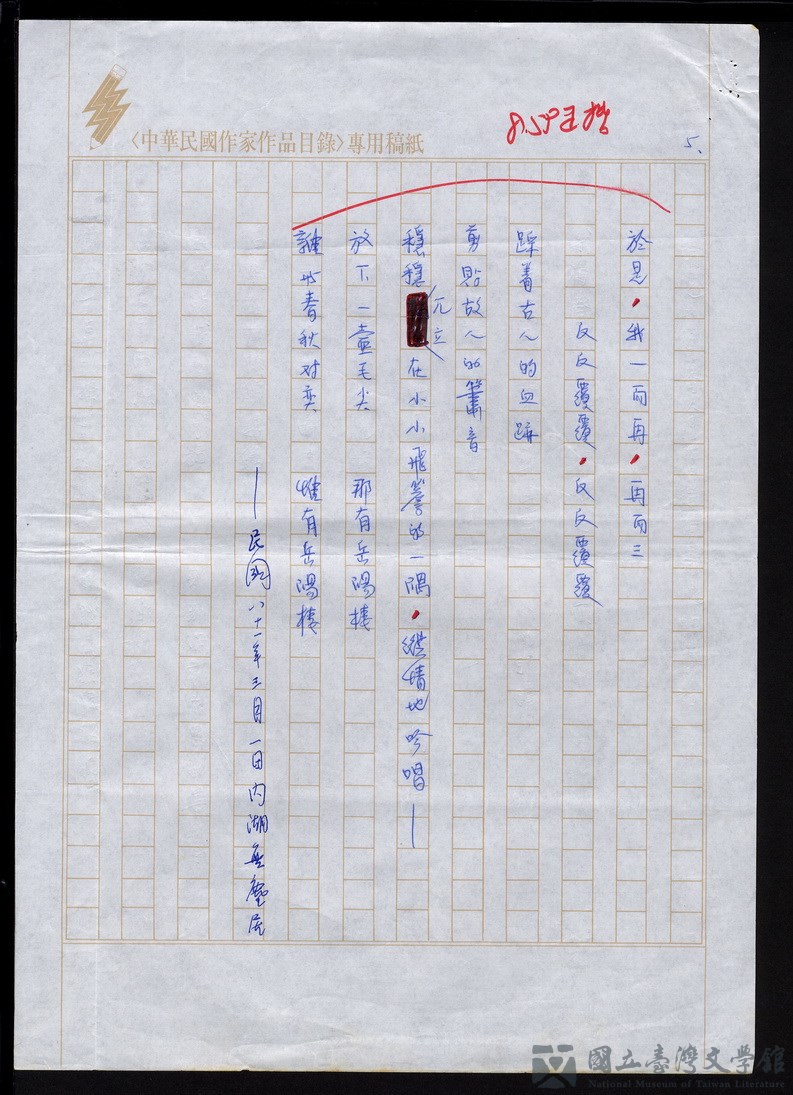 〈中華民國作家作品目錄〉專用稿紙
5.
於是,我一而再,再而三
反反覆覆,反反覆覆
踩着古人的血跡
剪貼故人的簫音
穩穩兀立在小小飛簷的一隅,縱情地吟唱—
放下一壺毛尖 那有岳陽樓
誰與春秋对奕 惟有岳陽樓
—民國八十一年三月一日內湖無塵居
國立臺灣文學館
National Museum of Taiwan Literature